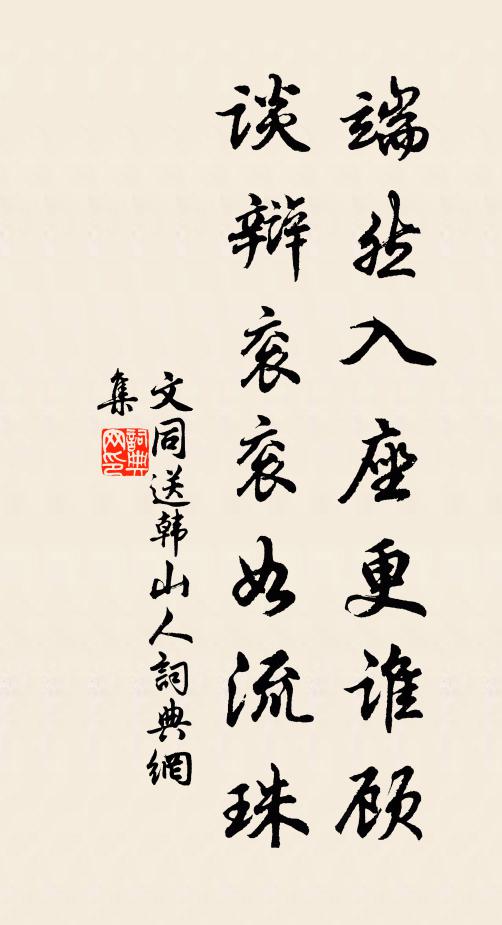 端然入座更谁顾
谈辩衮衮如流珠
文同送韩山人詞典網
集
詞典网印